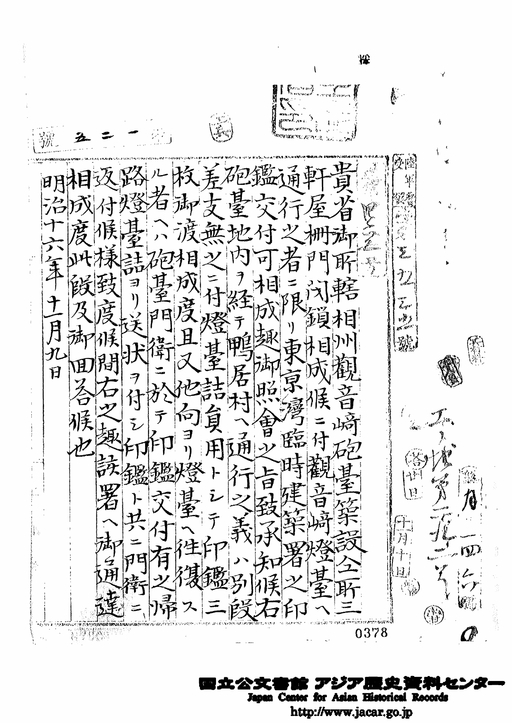 貴省御所轄相州觀音﨑砲臺築設公所三
軒屋柵門閉鎖相成候ニ付觀音﨑燈臺ヘ
通行之者ニ限リ東京灣臨時建築署之印
鑑交付可相成趣御照會之旨致承知候右
砲臺地內ヲ経テ鴨居村ヘ通行之義ハ別段
差支無之ニ付燈臺詰員用トシテ印鑑三
枚御渡相成度且又他向ヨリ燈臺ヘ往復ス
ル者ヘハ砲臺門衛ニ於テ印鑑交付有之歸
路燈臺詰ヨリ送状ヲ付シ印鑑ト共ニ門衛ニ
返付候様致度候間右之趣該署ヘ御通達
相成度此段及御回答候也
明治十六年十一月九日
十月十日
號 五二一
0378
国立公文書館 アジア歴史資料センター
Japan Center for Asian Historical Records
http://www.jacar.go.jp